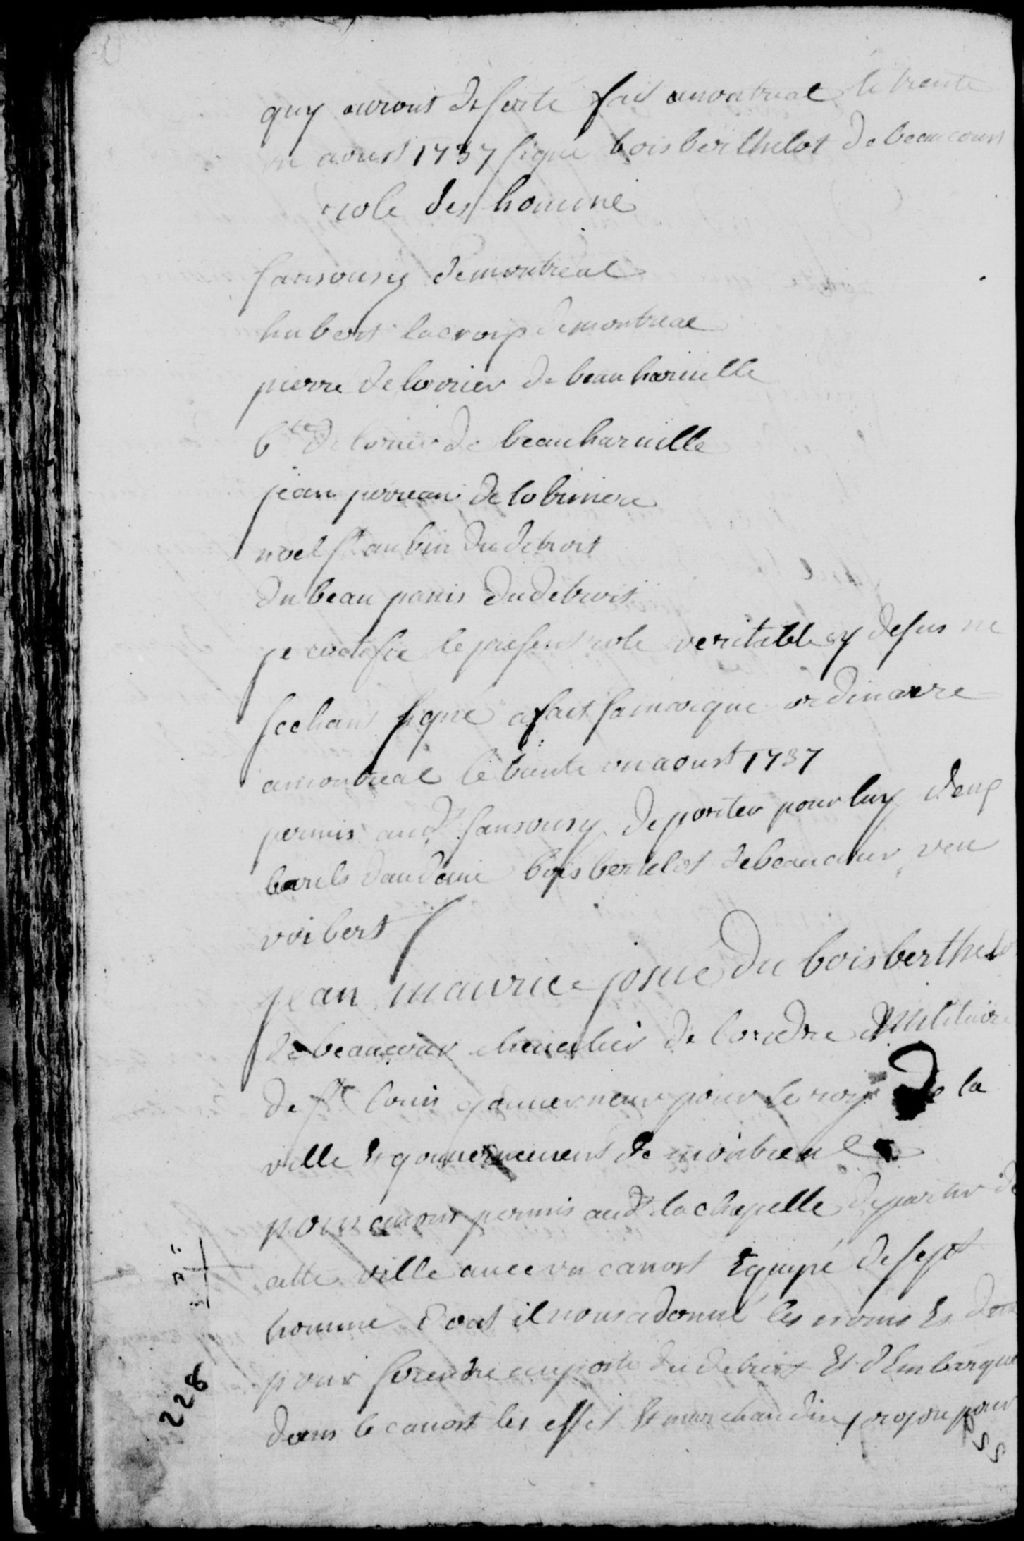 quy auront deserté fait amontreal le trente
un aoust 1737 signé boisberthelot de beaucourt
role des homme
sansousy demontreal
hubert lacroix demontreal
pierre de lorier de beauharnille
bte de lorier de beauharnille
jean perreau de lobiniere
noel st aubin du detroit
du beau panis du detroit
je certefie le present role veritable cy desus ne
sechant signé a fait sa marque ordinaire
amontreal le trente un aoust 1737
permis aud. sansousy de porter pour luy deux
barils daudevie boisbertelot debeaucour veu
voibert
jean maurice josué du boisberthelo
de beaucour chevalier de lordre Militaire
de st louis gouverneur pour le roy de la
ville & gouvernement de montreal
nous avons permis aud. la chapelle de partir de
cette ville avec un canost Equipé de sept
homme dont il nous a donné les noms &
pour se rendre au poste du detroit Et dEmbarquer
dans le canost les effet & marchandise propre pour
228